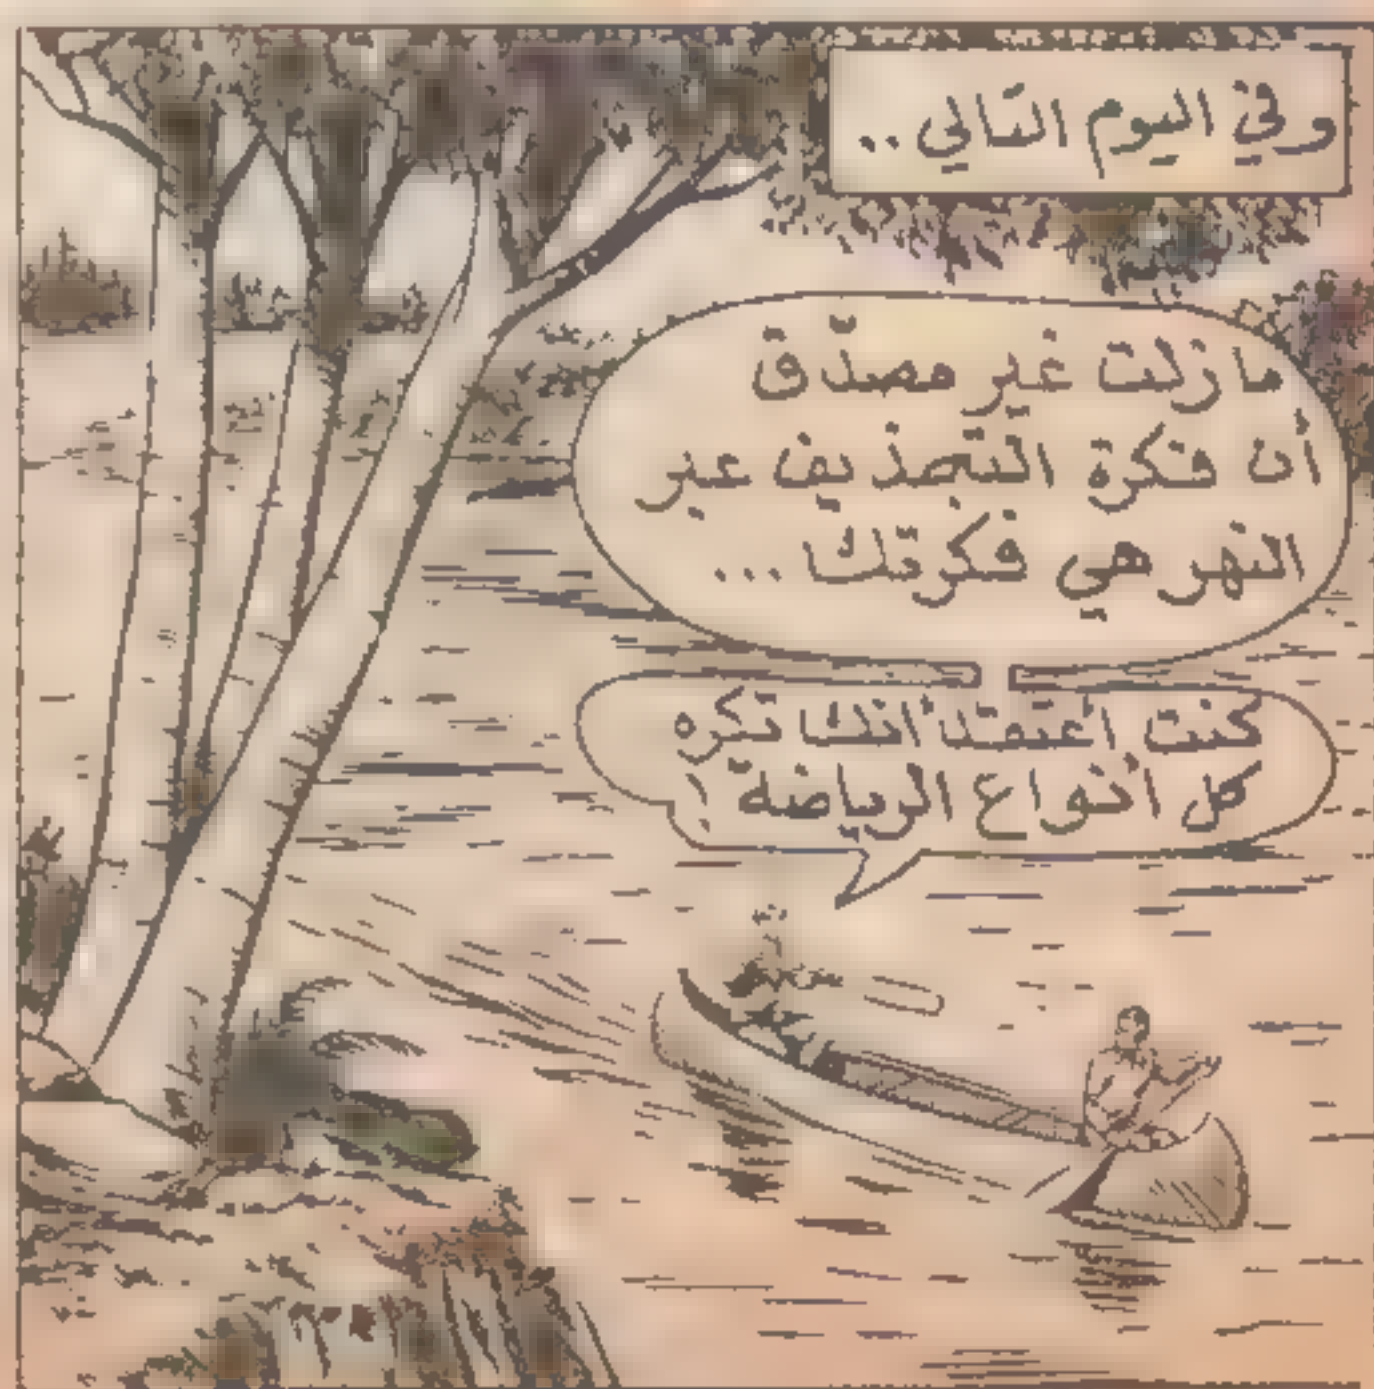 وفي اليوم التالي ..
ما زلت غير مصدّق
أن فكرة التجذيف عبر
النهر هي فكرتك ...
كنت أعتقد أنك تكره
كل أنواع الرياضة !